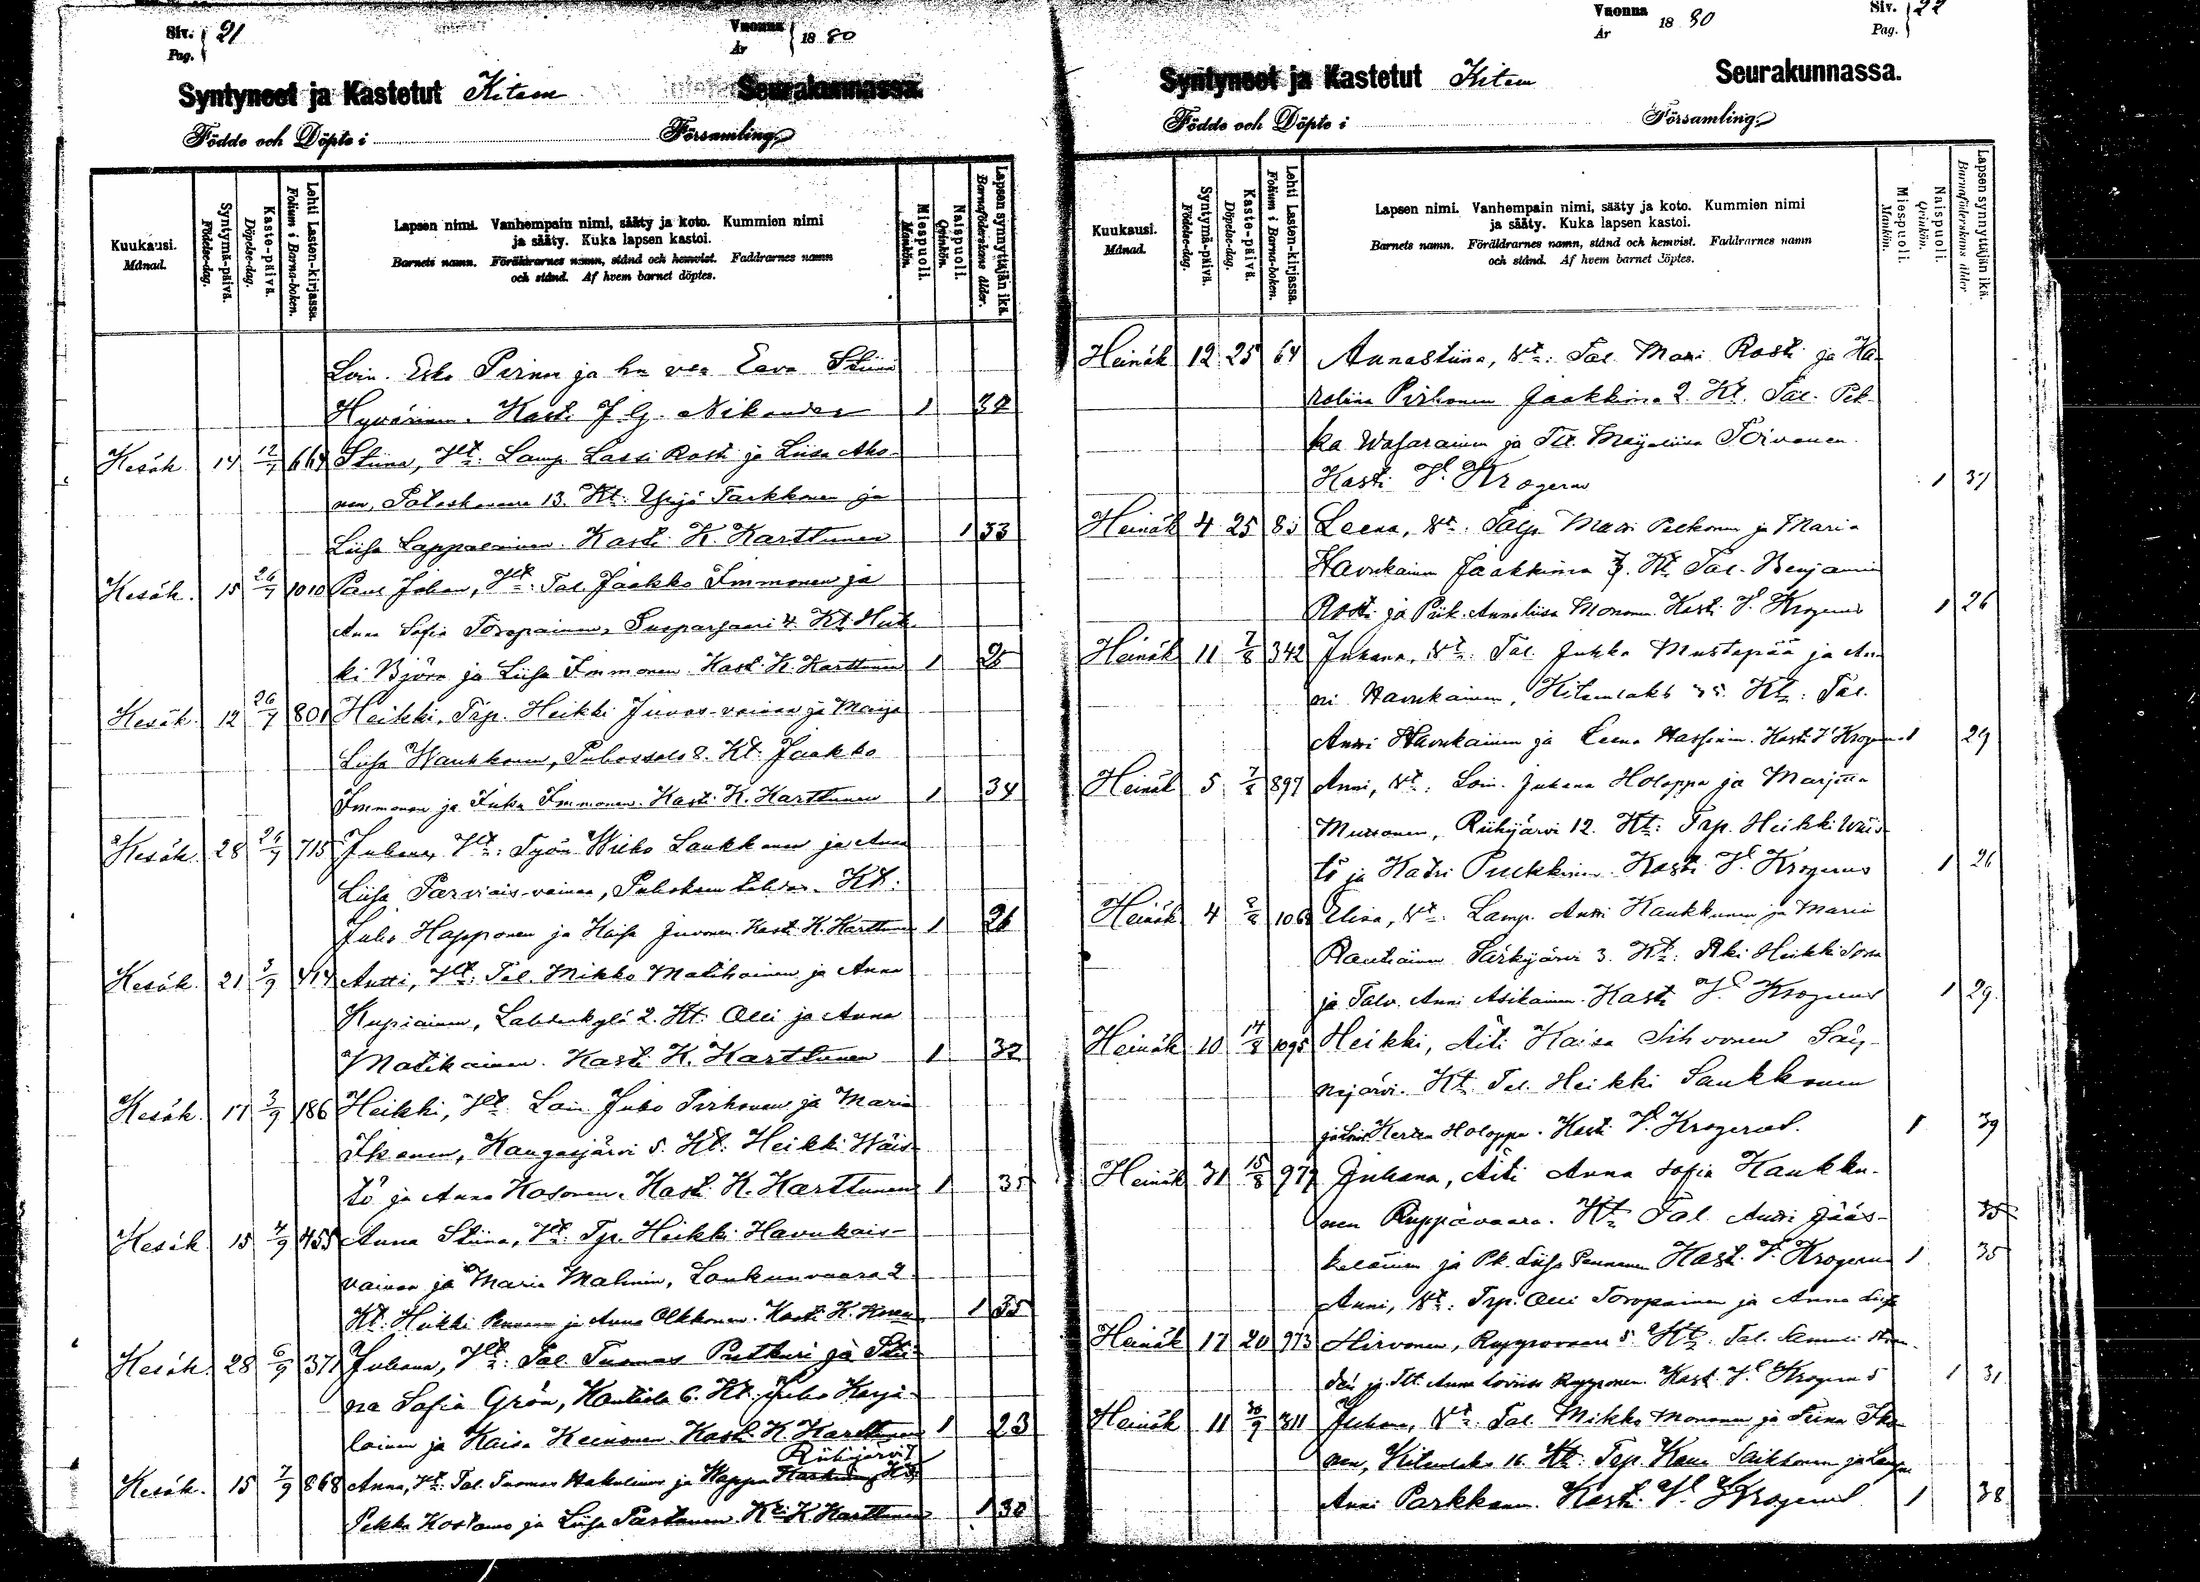 Siv. 21
Pag.
Vuonna 1880
År
Syntyneet ja Kastetut Kiteen Seurakunnassa.
Födde och Döpte i Församling.
Kuukausi. Månad.
Syntymä-päivä. Födelse-dag.
Kaste-päivä. Döpelse-dag.
Lehti Lasten-kirjassa. Folium i Barna-boken.
Lapsen nimi. Vanhempain nimi, sääty ja koto. Kummien nimi
ja sääty. Kuka lapsen kastoi.
Barnets namn. Föräldrarnes namn, stånd och hemvist. Faddrarnes namn
och stånd. Af hvem barnet döptes.
Miespuoli. Mankön.
Naispuoli. Qvinkön.
Lapsen synnyttäjän ikä. Barnaföderskans ålder.
Loin. Esko Pirinen ja Eeva Stiina
Hyvärinen. Kast. J. G. Nikander 1
Kesäk. 14 12/7 664 Stiina, Vt: Lamp. Lassi Rosti ja Liisa Aho-
nen, 13. Kt. Yrjö Tarkkonen ja
Liisa Lappalainen. Kasti K. Karttunen 1 33
Kesäk. 15 26/7 1010 Johan, Vt: Tal. Jaakko Immonen ja
Anna Sofia Toropainen, Suoparsaari 4. Kt. Heik-
ki Björn ja Liisa Immonen. Kast. K. Karttunen 1
Kesäk. 12 26/7 801 Heikki, Trp. Heikki Juvos-vainaa ja Maija
Liisa Wankkonen, Puhossalo 8. Kt. Jaakko
Immonen ja Immonen. Kast. K. Karttunen 1 34
Kesäk. 28 26/7 715 Juhana, Vt: Työm. Laukkanen ja Anna
Liisa Parviais-vainaa, Kt:
Juho Happonen ja Kaisa Juvonen. Kast. K. Karttunen 1 26
Kesäk. 21 3/9 414 Antti, Vt: Tal. Mikko Matikainen ja Anna
Kupiainen, Lahdenkylä 2. Kt. Olli ja Anna
Matikainen. Kast. K. Karttunen 1 32
Kesäk. 17 3/9 186 Heikki, Vt: Loin. Juho Pirhonen ja Maria
Ikonen, Kangasjärvi 5. Kt: Heikki Wäis-
tö ja Anna Kosonen. Kast. K. Karttunen 1 35
Kesäk. 15 4/9 455 Anna Stiina, Vt: Trp. Heikki Havukais-
vainaa ja Maria Malinin, Loukunvaara 2.
Kt. Heikki Pennanen ja Anna Olkkonen. Kasti K. 1 35
Kesäk. 28 6/9 371 Juhana, Vt: Tal. Tuomas Putkuri ja Stii-
na Sofia Grön, Hautiola 6. Kt. Juho Karja-
lainen ja Kaisa Keinonen. Kast. K. Karttunen 1 23
Riihijärvi 7
Kesäk. 15 7/9 868 Anna, Vt: Tal. Tuomas Hakulinen ja Kt.
Pekka Kostamo ja Liisa Partanen. K. K. Karttunen 1 30
Siv. 22
Pag.
Vuonna 1880
År
Syntyneet ja Kastetut Kiteen Seurakunnassa.
Födde och Döpte i Församling.
Kuukausi. Månad.
Syntymä-päivä. Födelse-dag.
Kaste-päivä. Döpelse-dag.
Lehti Lasten-kirjassa. Folium i Barna-boken.
Lapsen nimi. Vanhempain nimi, sääty ja koto. Kummien nimi
ja sääty. Kuka lapsen kastoi.
Barnets namn. Föräldrarnes namn, stånd och hemvist. Faddrarnes namn
och stånd. Af hvem barnet döptes.
Miespuoli. Mankön.
Naispuoli. Qvinkön.
Lapsen synnyttäjän ikä. Barnaföderskans ålder
Heinäk 12 25 64 Annastiina, Vt: Tal. Matti Rosti ja Ka-
rolina Pirhonen Jaakkima 2. Kt. Tal. Pek-
ka Wasarainen ja Tt. Maijaliisa Toivanen.
Kasti Krogerus 1 37
Heinäk 4 25 Leena, Vt: Matti Pekonen ja Maria
Havukainen Jaakkima 7. Kt: Tal. Benjamin
Rosti ja Piik. Annaliisa Mononen. Kasti Krogerus 1 26
Heinäk 11 7/8 342 Juhana, Vt: Tal. Jukka Mustapää ja An-
ni Havukainen, Kiteenlaks Kt: Tal.
Antti Havukainen ja Leena Hassinen. Kasti Krogerus 1 29
Heinäk 5 7/8 897 Anni, Vt: Loin. Juhana Holoppa ja Marjetta
Mutsonen, Riihijärvi 12. Kt: Trp. Heikki Wäis-
tö ja Katri Puukkinen. Kasti Krogerus 1 26
Heinäk 4 8/8 Elisa, Vt: Lamp. Antti Kaukkunen ja Maria
Rautiainen Särkijärvi 3. Kt: Rki Heikki
ja Talv. Anni Asikainen. Kasti Krogerus 1 29.
Heinäk 10 14/8 1095 Heikki, Äiti Kaisa Sihvonen Säy-
nejärvi. Kt. Tal. Heikki Saukkonen
ja Lois Kerttu Holoppa. Kasti Krogerus. 1 39
Heinäk 31 15/8 979 Juhana, Äiti Anna Sofia Kaukku-
nen Ruppovaara. Kt: Tal. Antti Jääs- 35
keläinen ja Pk. Liisa Pennanen Kast. Krogerus 1 35
Anni, Vt: Trp. Olli Toropainen ja Anna Liisa
Heinäk 17 20 973 Hirvonen, Ruppovaara 5. Kt: Tal. Samuli
ja Tt. Anna Loviisa Rupponen. Kast. Krogerus 1 31
Heinäk 11 30/9 311 Juhana, Vt: Tal. Mikko Mononen ja Stina Iko-
nen, Kiteenlaks 16. Kt: Trp. Saikkonen ja
Anni Parkkonen. Kasti Krogerus 1 38